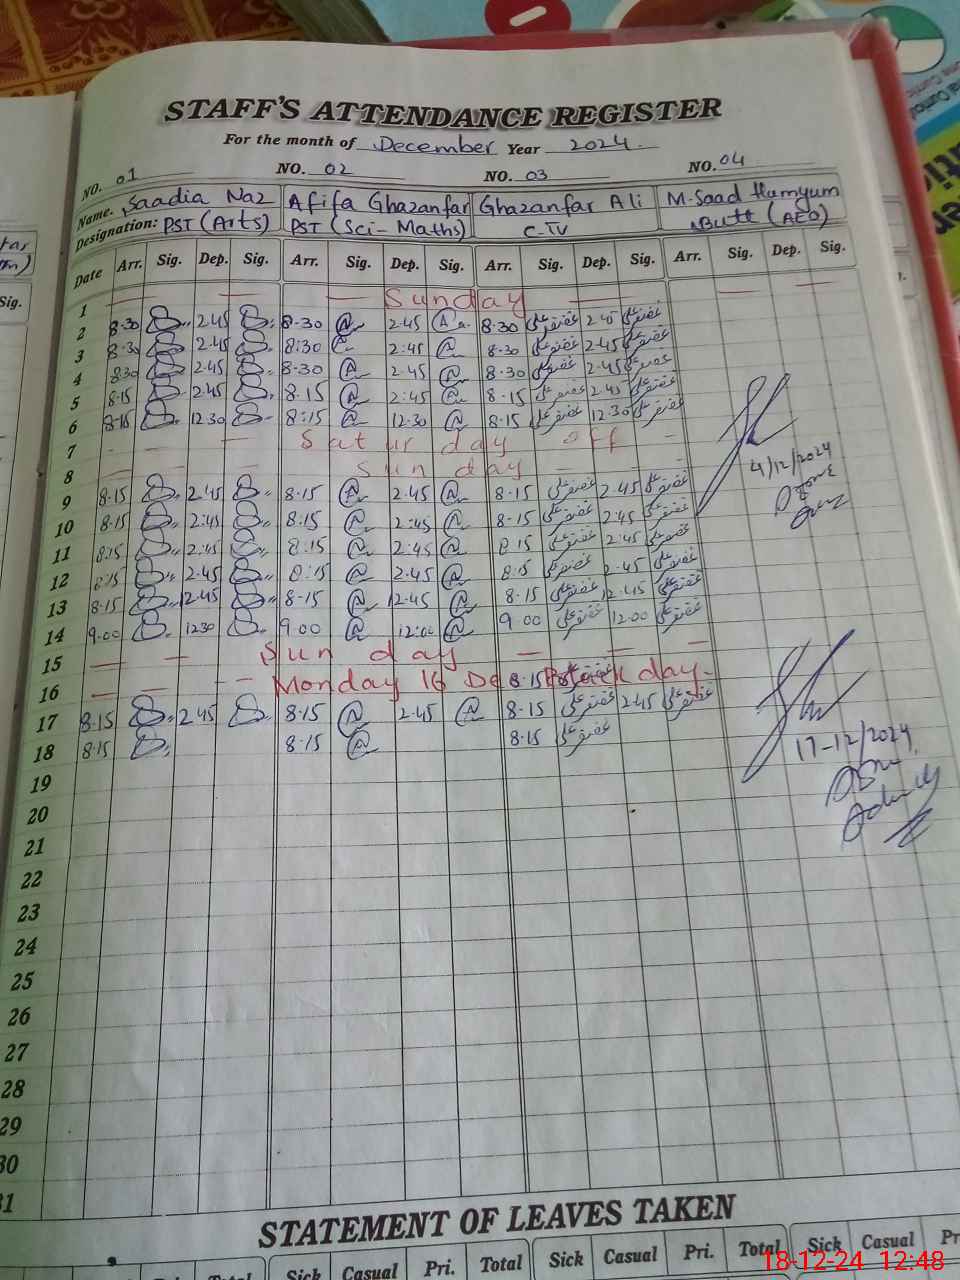 STAFF'S ATTENDANCE REGISTER
For the month of December Year 2024.
NO. 01 NO. 02 NO. 03 NO. 04
Name. Saadia Naz Afifa Ghazanfar Ghazanfar Ali M. Saad Humyum
Designation: PST (Arts) PST (Sci-Maths) C.TV Butt (AEO)
Date Arr. Sig. Dep. Sig. Arr. Sig. Dep. Sig. Arr. Sig. Dep. Sig. Arr. Sig. Dep. Sig.
1 Sunday
2 8-30 2.45 8-30 2.45 8.30 غضنفر علی 2.45 غضنفر علی
3 8-30 2.45 8:30 2:45 8-30 غضنفر علی 2.45 غضنفر علی
4 8.30 2.45 8-30 2.45 8-30 غضنفر علی 2.45 غضنفر علی
5 8-15 2.45 8.15 2:45 8-15 غضنفر علی 2.45 غضنفر علی
6 8-15 12.30 8:15 12.30 8-15 غضنفر علی 12.30 غضنفر علی
7 Saturday off
8 Sunday
4/12/2024
9 8-15 2.45 8-15 2.45 8-15 غضنفر علی 2.45 غضنفر علی
10 8.15 2:45 8:15 2:45 8-15 غضنفر علی 2.45 غضنفر علی
11 8:15 2:45 8:15 2:45 8.15 غضنفر علی 2.45 غضنفر علی
12 8:15 2.45 8:15 2.45 8.15 غضنفر علی 2.45 غضنفر علی
13 8-15 12.45 8-15 12.45 8-15 غضنفر علی 12.45 غضنفر علی
14 9.00 1230 9.00 12:00 9.00 غضنفر علی 12.00 غضنفر علی
15 Sunday
16 Monday 16 De 8-15 Black day.
17 8.15 2.45 8-15 2.45 8-15 غضنفر علی 2.45 غضنفر علی
18 8-15 8-15 8-15 غضنفر علی
17-12/2024
19
20
21
22
23
24
25
26
27
28
29
30
31
STATEMENT OF LEAVES TAKEN
Total Sick Casual Pri. Total Sick Casual Pri. Total Sick Casual
18-12-24 12:48